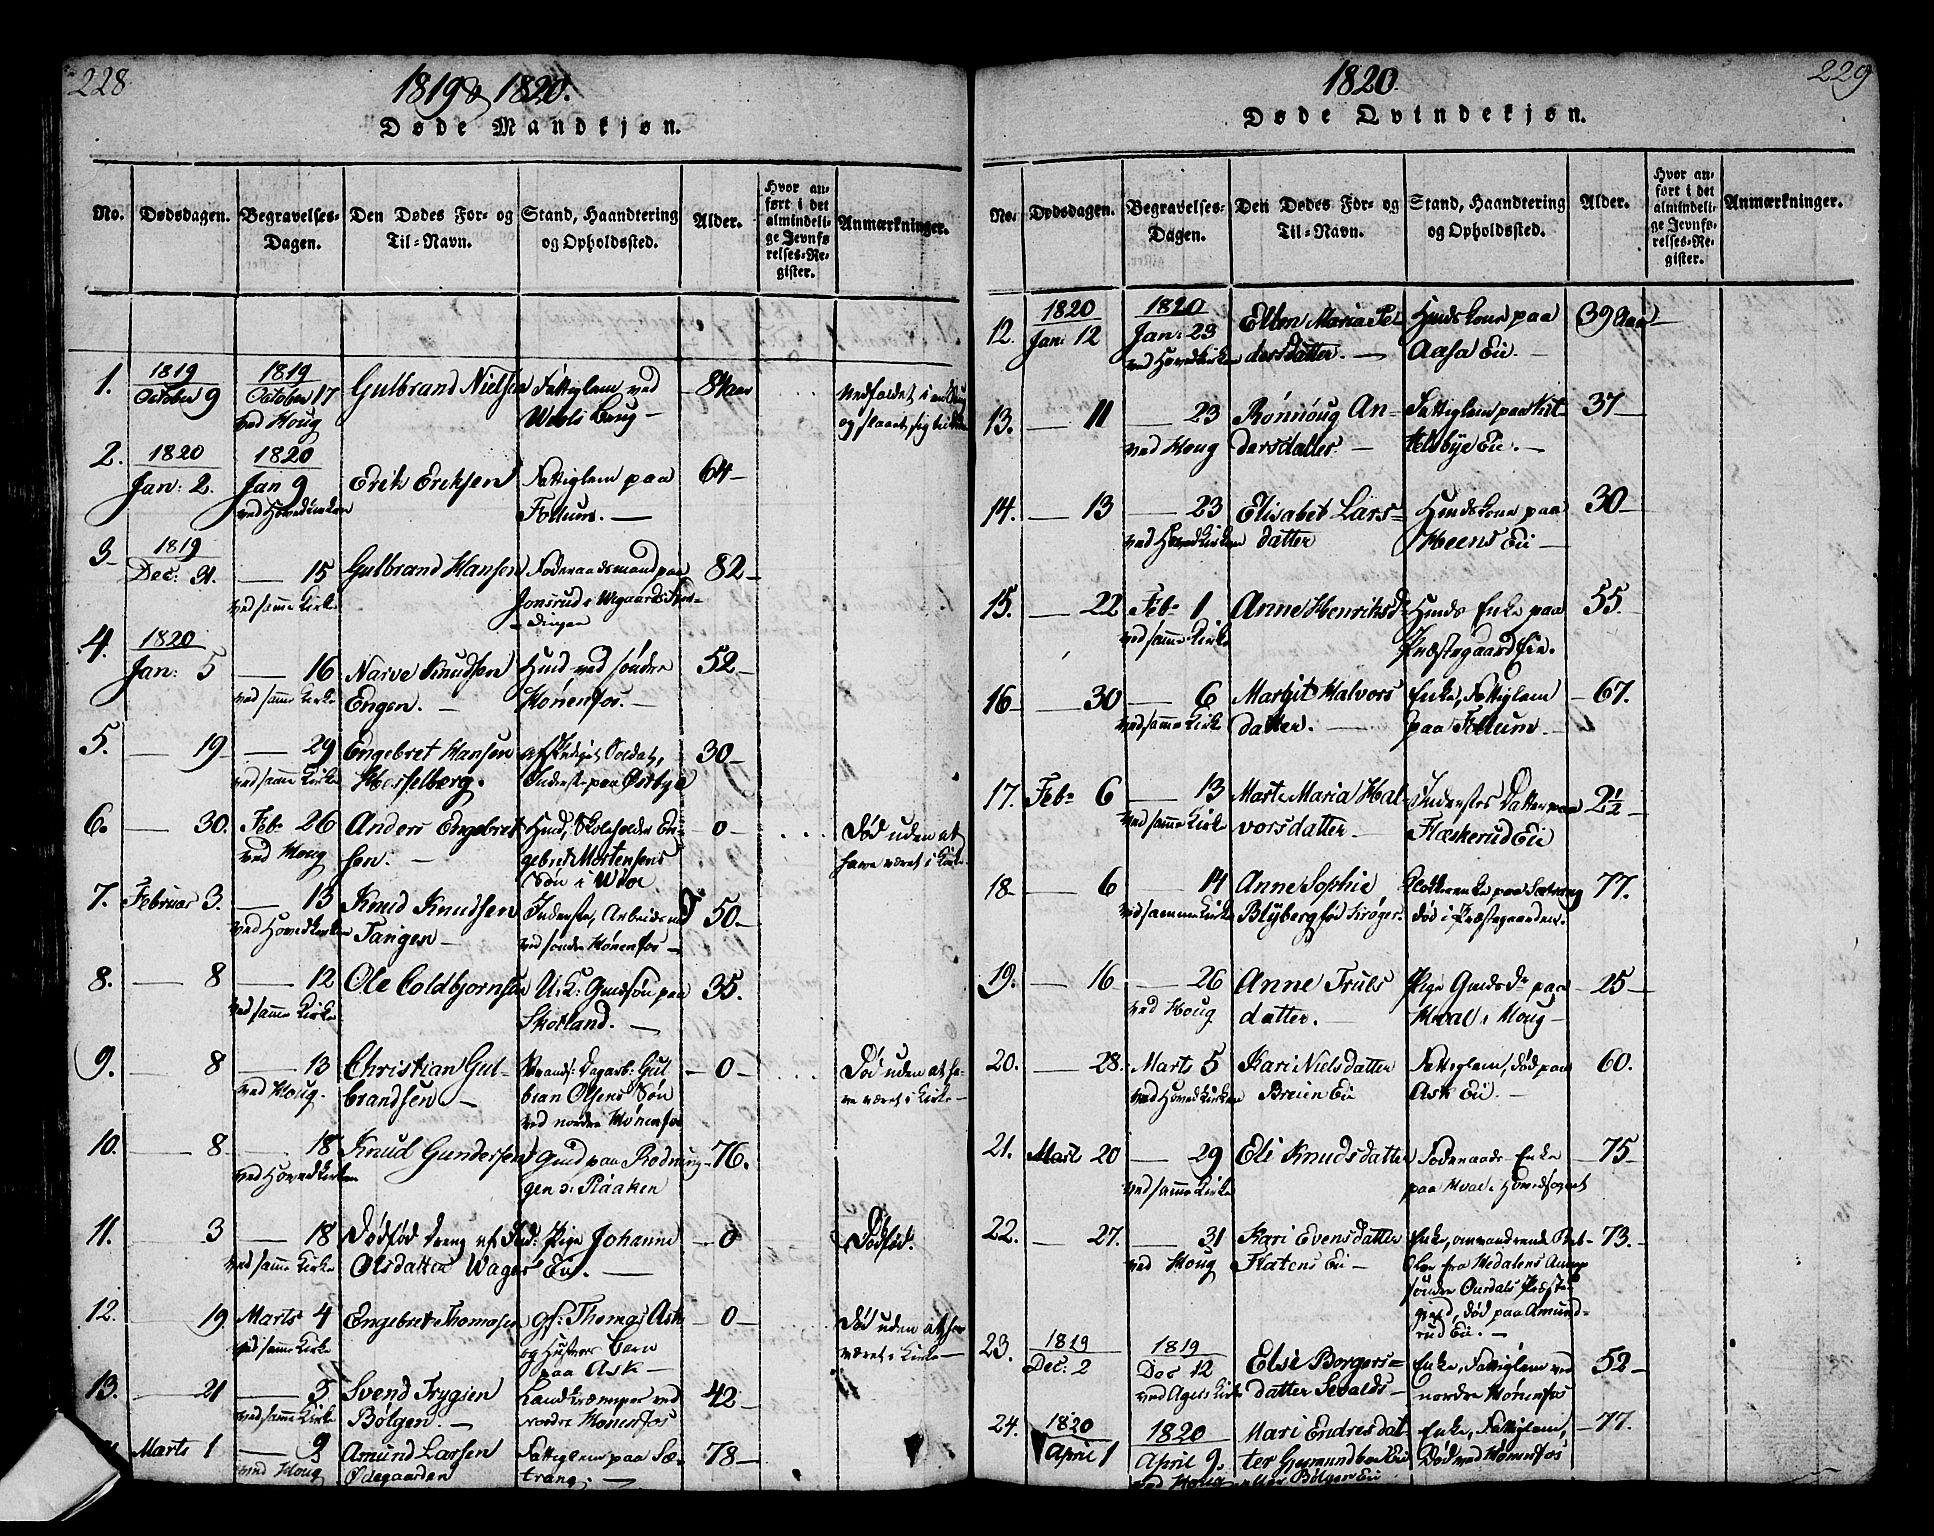 228
1819 & 1820.
Døde Mandkjøn.
No. Dødsdagen. Begravelses-Dagen. Den Dødes For- og Til-Navn. Stand, Haandtering og Opholdssted. Alder. Hvor anført i det almindelige Jevnførelses-Register. Anmærkninger.
1. 1819 October 9 1819 October 17 ved Houg Gulbrand Nielsen Fattiglem ved Brug 84 Aar
2. 1820 Jan: 2. 1820 Jan 9 ved Hovedkirken Erik Eriksen Fattiglem paa Follum. 64
3. 1819 Dec: 31. 15 ved samme Kirke Gulbrand Hansen Føderaadsmand paa Jonsrud 82
4. 1820 Jan: 5 16 ved samme Kirke Narve Knudsen Engen. Huusmd ved søndre Hønenfos. 52
5. 19 29 ved samme Kirke Engebret Hansen Hesselberg. afskediget Soldat, Inderst paa Østbye 30
6. 30. Feb. 26 ved Houg Anders Engebretsen. Skoleholder Engebret Mortensens Søn i 0 Død uden at have været i Kirke
7. Februar 3. 13 ved Hovedkirken Knud Knudsen Tangen Inderst, Arbeidsmd ved søndre Hønenfos 50
8. 8 12 ved samme Kirke Ole Coldbjornsen U: K: Gmdsøn paa Skotland. 35.
9. 8 13 ved Houg. Christian Gulbrandsen Dagarb: Gulbran Olsens Søn ved nordre Hønenfos 0 Død uden at have været i Kirke
10. 8 18 ved Hovedkirken Knud Gundersen Gmd paa Rødningen o: Raaken 76.
11. 3 18 ved samme Kirke Dødfød Dreng af Ind: Pige Johanne Olsdatter Wager Eie. 0 Dødfød.
12. 19 Marts 4 ved samme Kirke Engebret Thomasen Thomas Ask og Hustrues Barn paa Ask 0 Død uden at have været i Kirke
13. 21 5 ved samme Kirke Svend Trygien Bølgen. ved nordre Hønenfos 42
Marts 1 9 ved Houg Amund Larsen Ødegaarden Fattiglem paa Sætrang. 78
229
1820
Døde Qvindekjøn.
No. Dødsdagen. Begravelses-Dagen. Den Dødes For- og Til-Navn. Stand, Haandtering og Opholdssted. Alder. Hvor anført i det almindelige Jevnførelses-Register. Anmærkninger.
12. 1820 Jan: 12 1820 Jan: 23 ved Hovedkirken Ellen Maria Pedersdatter. Hmdskone paa Aasa Eie. 39 Aar
13. 11 23 ved Houg Rønnoug Andersdatter Fattiglem paa Kittelsbye Eie. 37
14. 13 23 ved Hovedkirken Elisabet Larsdatter Hmdskone paa Heens Eie 30
15. 22 Feb. 1 ved samme Kirke Anne Henriksd. Hmds Enke paa Præstegaard Eie. 55
16 30 6 ved samme Kirke Margit Halvorsdatter. Enke, Fattiglem paa Follum 67.
17. Feb. 6 13 ved samme Kirke Marte Maria Halvorsdatter Inderstes Datter paa Flaskerud Eie 2½
18 6 14 ved samme Kirke Anne Sophie Blyberg fød Krøger. Klokkerenke paa Sætrang død i Præstegaarden. 77.
19. 16 26 ved Houg Anne Trulsdatter. Pige Gmds D. paa Hval i Houg 25
20. 28. Marts 5 ved Hovedkirken Kari Nielsdatter Breien Eie Fattiglem, død paa Ask Eie. 60.
21. Marts 20 29 ved samme Kirke Eli Knudsdatter Føderaads Enke paa Hval i Hovedsognet 75
22. 27. 31 ved Houg Kari Evensdatter Flatens Eie Enke, omvandrende fra Medalens Annex søndre Ourdals Præstegield, død paa Amundrud Eie. 73.
23. 1819 Dec. 2 1819 Dec 12 Else Borgersdatter Enke, Fattiglem ved nordre Hønenfos 52
24. 1820 April 1 1820 April 9. ved Houg Mari Endresdatter Enke, Fattiglem, død ved Hønenfos 77.